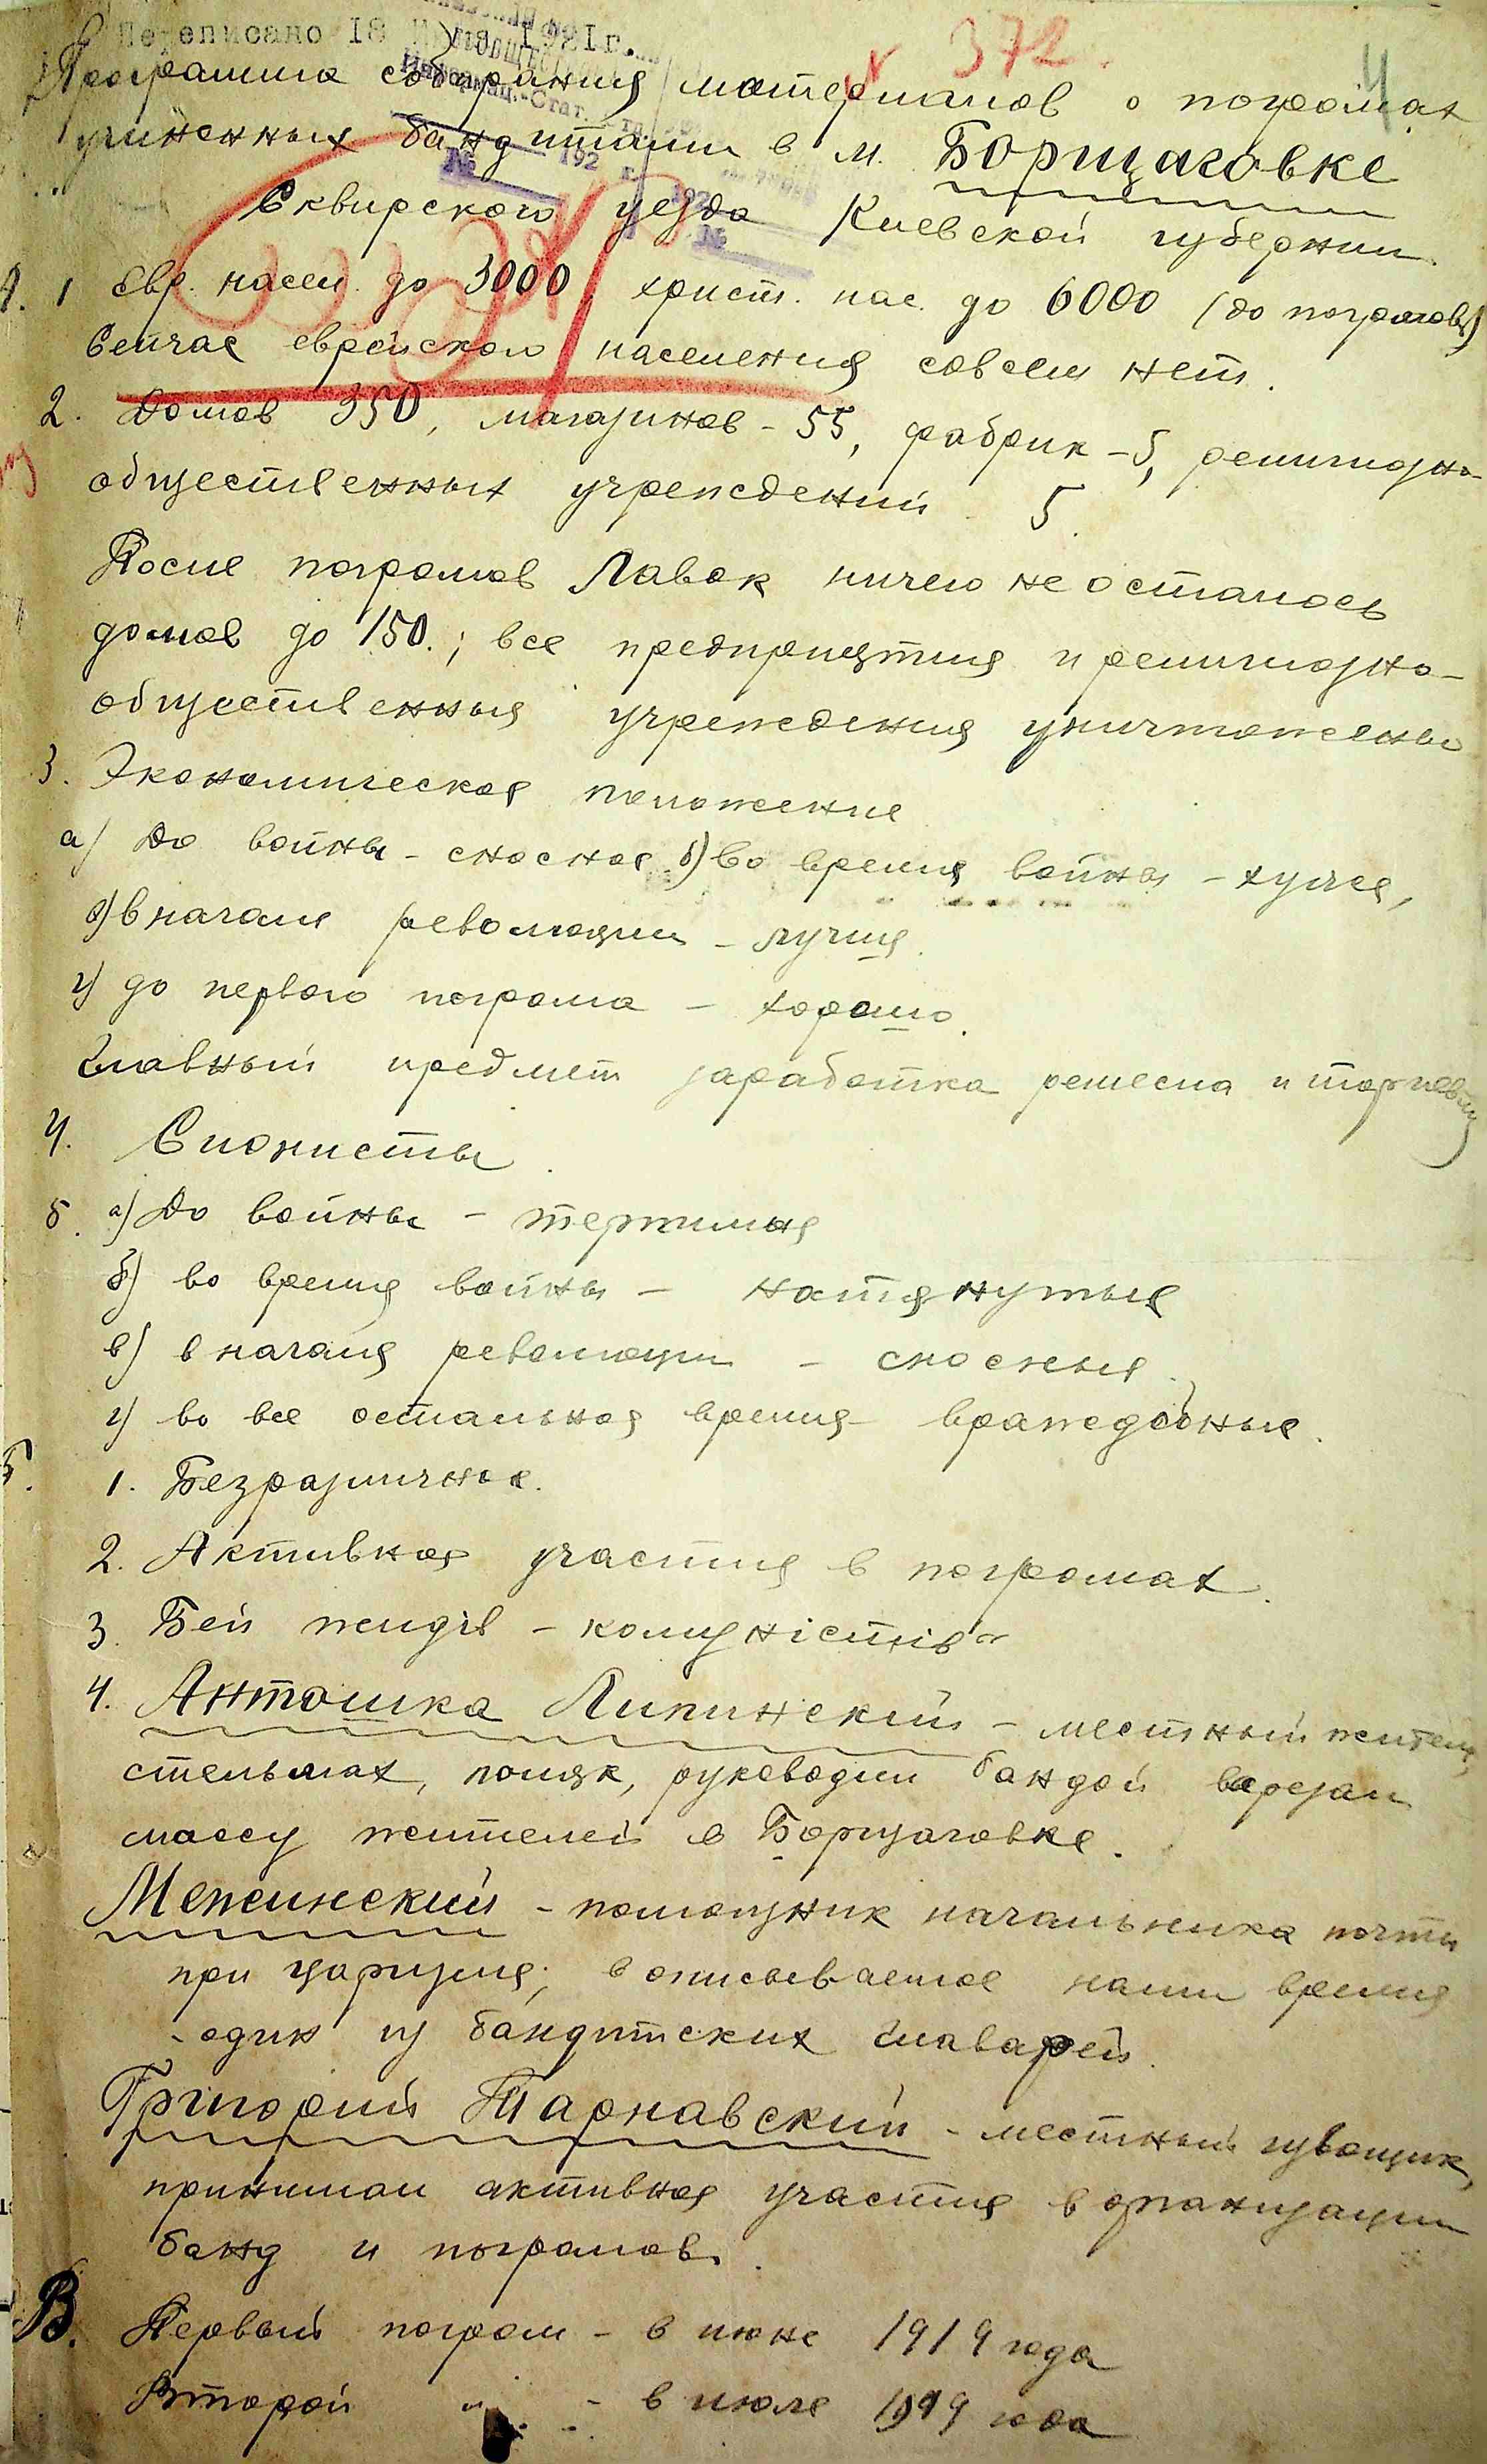 Переписано 18 1921г.
№ 372. 4
Программа собирания материалов о погромах
учиненных бандитами в м. Борщаговке
№ 192 г.
Сквирского уезда Киевской губернии.
№
А. 1 Евр. насел. до 3000, христ. нас. до 6000 (до погромов)
Сейчас еврейского населения совсем нет.
2. Домов 350, магазинов - 55, фабрик - 5, религиозно-
общественных учреждений 5.
После погромов Лавок ничего не осталось
домов до 150.; все предприятия и религиозно-
общественныя учреждения уничтожены
3. Экономическая положение
а) До войны - сносная б) во время войны - хуже,
в) в начале революции - лучше.
г) до первого погрома - хорошо.
Главный предмет заработка ремесла и торговля
4. Сионисты.
5. а) До войны - терпимыя
б) во время войны - натянутые
в) в начале революции - сносныя.
г) во все остальное время - враждебные.
Б. 1. Безразличное.
2. Активная участия в погромах.
3. Бей жидів - комуністів"
4. Антошка Липинский - местный житель,
стельмах, поляк, руководил бандой вырезал
массу жителей в Борщаговке.
Межинский - помощник начальника почты
при царизме; в описываемое нами время
- один из бандитских главарей.
Григорий Тарнавский - местный извощик,
принимал активная участия в организации
банд и погромов.
В. Первый погром - в июне 1919 года
Второй " - в июле 1919 года